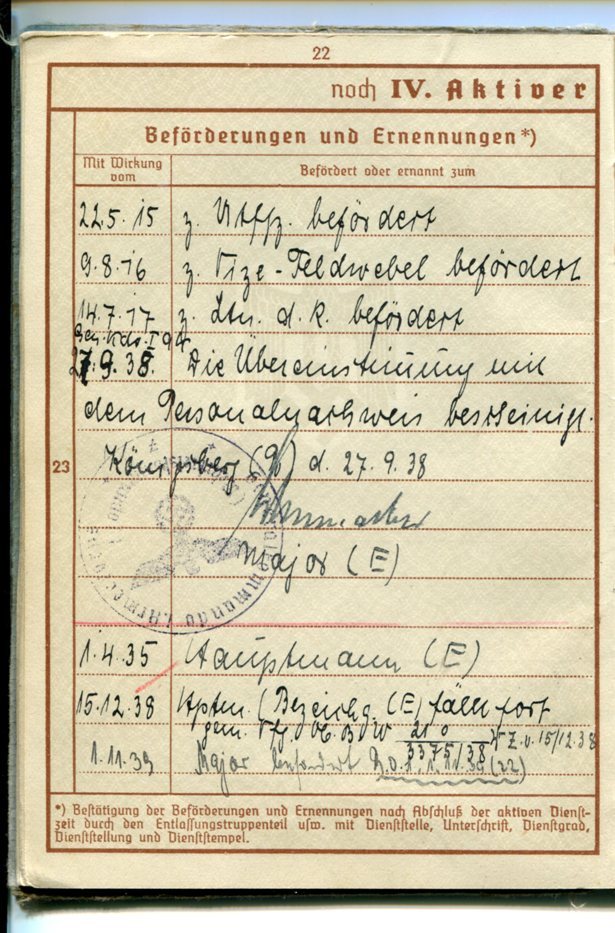 22
noch IV. Aktiver
Beförderungen und Ernennungen*)
Mit Wirkung vom
Befördert oder ernannt zum
22.5.15 z. Utffz. befördert
9.8.16 z. Vize-Feldwebel befördert
14.7.17 z. Ltn. d. R. befördert
27.9.38. Die Übereinstimmung mit
dem Personalnachweis bescheinigt.
23
Königsberg (Pr) d. 27.9.38
Major (E)
1.4.35 Hauptmann (E)
15.12.38 Hptm. (Bezeichg. (E) fällt fort
gem. Vfg. Ob. d. H. 3375/38 v. 15/12.38
1.11.39 Major befördert
*) Bestätigung der Beförderungen und Ernennungen nach Abschluß der aktiven Dienst-
zeit durch den Entlassungstruppenteil usw. mit Dienststelle, Unterschrift, Dienstgrad,
Dienststellung und Dienststempel.